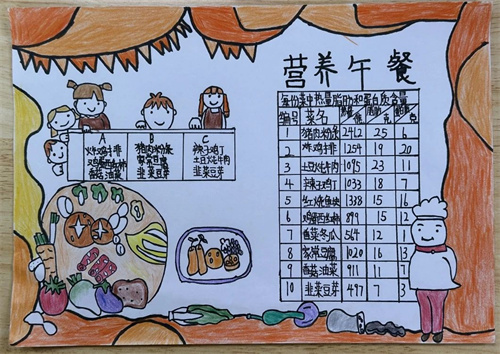 营养午餐
A
炸鸡排
家常豆腐
香菇油菜
B
猪肉粉条
家常豆腐
韭菜豆芽
C
辣子鸡丁
土豆炖牛肉
韭菜豆芽
每份菜中热量脂肪和蛋白质含量
编号 菜名 热量 脂肪 蛋白质
1 猪肉粉条 2462 25 6
2 炸鸡排 1254 19 20
3 土豆炖牛肉 1095 23 11
4 辣子鸡丁 1033 18 7
5 红烧鱼块 1338 15 16
6 鸡蛋西红柿 899 15 12
7 鱼菜冬瓜 564 12 1
8 家常豆腐 1020 16 13
9 香菇油菜 911 11 7
10 韭菜豆芽 497 7 3